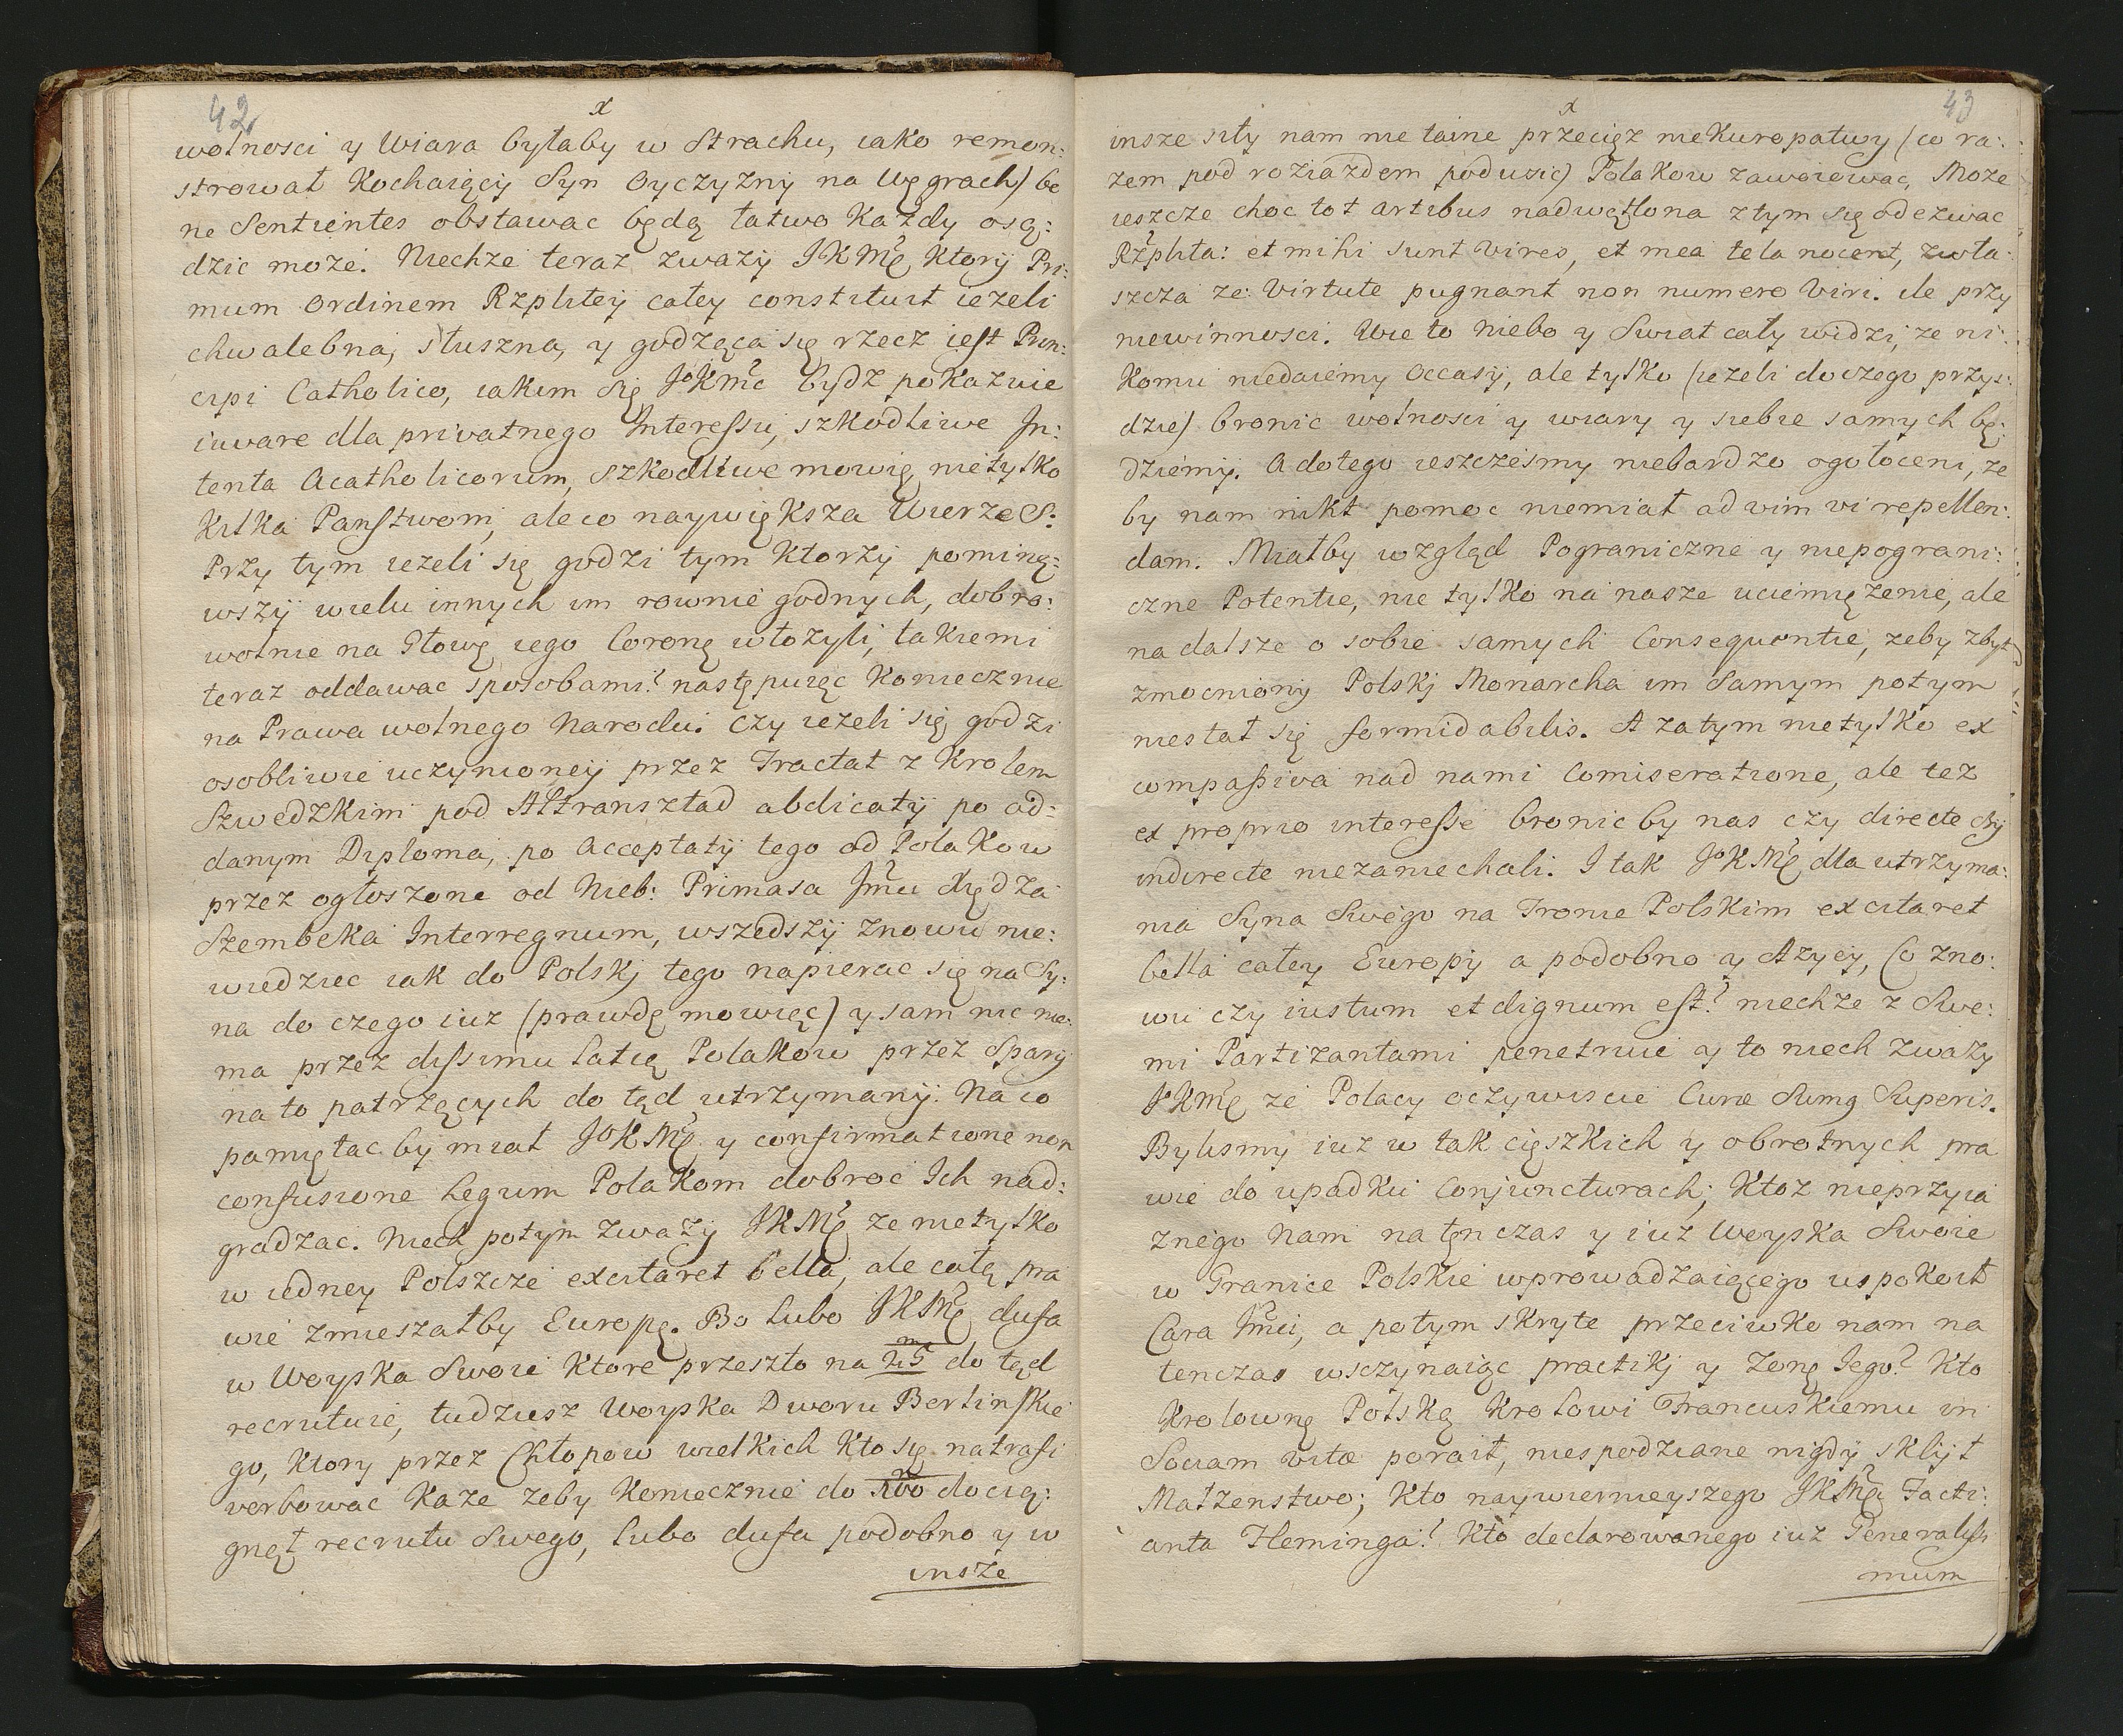 42
x
wolnosci y Wiara byłaby w Strachu, iako remon:
strował Kochaiący Syn Oyczyzny na Węgrach) be
ne Sentientes obstawac będą łatwo Każdy osą:
dzic może. Niechże teraz zważy JKMć Ktory Pri:
mum Ordinem Rzpltey całey constituit ieżeli
chwalebna, słuszna, y godząca się rzecz iest Prin:
cipi Catholico, iakim się JoKmć bydz pokazuie
iuvare dla privatnego Interessu, szkodliwe In:
tenta Acatholicorum, szkodliwe mowię nietylko
Kilka Panstwom, ale co naywiększa Wierze S:
Przy tym ieżeli się godzi tym Ktorzy pominą:
wszy wielu innych im rownie godnych, dobro:
wolnie na Głowę iego Coronę włożyli, takiemi
teraz oddawac sposobami? następuiąc Koniecznie
na Prawa wolnego Narodu. Czy ieżeli się godzi
osobliwie uczynioney przez Tractat z Krolem
Szwedzkim pod Altransztad abdicaty po od:
danym Diploma, po Acceptaty tego od Polakow
przez ogłoszone od Nieb: Primasa Jmću Xiędza
Szembeka Interregnum, wszedszy znowu nie:
wiedziec iak do Polski tego napierac się na Sy:
na do czego iuz (prawdę mowiąc) y sam nic nie:
ma przez dissimulatią Polakow przez Spary
na to patrzących do tąd utrzymany. Na co
pamiętac by miał JoKMć y confirmatione non
confusione Legum Polakom dobroc Ich nad:
gradzac. Niech potym zwazy JKMć ze nietylko
w iedney Polszcze excitaret bella, ale całą pra
wie zmieszałby Europę. Bo lubo JKMć dufa
w Woyska Swoie Ktore przeszło na 25 do tąd
recrutuie, tudziesz Woyska Dworu Berlinskie
go, Ktory przez Chłopow wielkich Kto się natrafi
verbowac Kaze zeby Koniecznie do docią:
gnął recrutu Swego, lubo dufa podobno y w
insze
43
x
insze siły nam nie taine przecięz nie Kuropatwy (co ra:
zem pod roziazdem podusic) Polakow zawoiowac, Moze
ieszcze choc tot artibus nadwątlona z tym się odezwac
Rzplta: et mihi sunt vires, et mea tela nocent, zwła:
szcza ze Virtute pugnant non numero Viri. ile przy
niewinnosci. Wie to Niebo y Swiat cały widzi, ze ni:
Komu niedaiemy Occasij, ale tylko (iezeli do czego przyi:
dzie) bronic wolnosci y wiary y siebie samych bę:
dziemy. A do tego ieszczesmy niebardzo ogołoceni, ze
by nam nikt pomoc niemiał ad vim vi repellen:
dam. Miałby wzgląd Pograniczne y niepograni:
czne Potentie, nie tylko na nasze uciemięzenie, ale
na dalsze o sobie samych Consequentie, zeby zbyt
zmocniony Polski Monarcha im samym potym
niestał się formidabilis. A zatym nietylko ex
compassiva nad nami Comiseratione, ale tez
ex proprio interesse bronic by nas czy directe czy
indirecte niezaniechali. I tak JoKMć dla utrzyma:
nia Syna Swego na Tronie Polskim excitaret
bella całey Europy a podobno y Azyey, Co zno:
wu czy iustum et dignum est? niechze z Swe:
mi Partizantami penetruie y to niech zwazy
JKMć ze Polacy oczywiscie Curæ Sumg Superis.
Bylismy iuz w tak cięszkich y obrotnych pra
wie do upadku Conjuncturach; Ktoz nieprzyia
znego Nam na tenczas y iuz Woyska Swoie
w Granice Polskie wprowadzaiącego uspokoił
Cara Jmći, a potym skryte przeciwko nam na
tenczas wsczynaiąc practiki y Zonę Iego? Kto
Krolownę Polską Krolowi Francuskiemu in
Sociam vitæ poraił, niespodziane nigdy sklyt
Małzenstwo; Kto naywiernieyszego JKMći Facti:
anta Fleminga? Kto declarowanego iuz Generalissi
mum